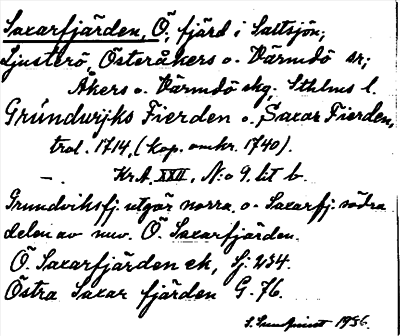 Saxarfjärden, Ö, fjärd i Saltsjön;
Ljusterö, Österåkers o. Värmdö sr;
Åkers o. Värmdö skg. Sthlms l.
Grúndwijks Fierden o. Saxar Fierden,
trol. 1714, (kop. omkr. 1740).
— . Kr.A. XXII, N:o 9. lit b.
Grundviksfj. utgör norra o. Saxarfj. södra
delen av nuv. Ö. Saxarfjärden.
Ö. Saxarfjärden ek, Sj: 234.
Östra Saxar fjärden G. 76.
1956.